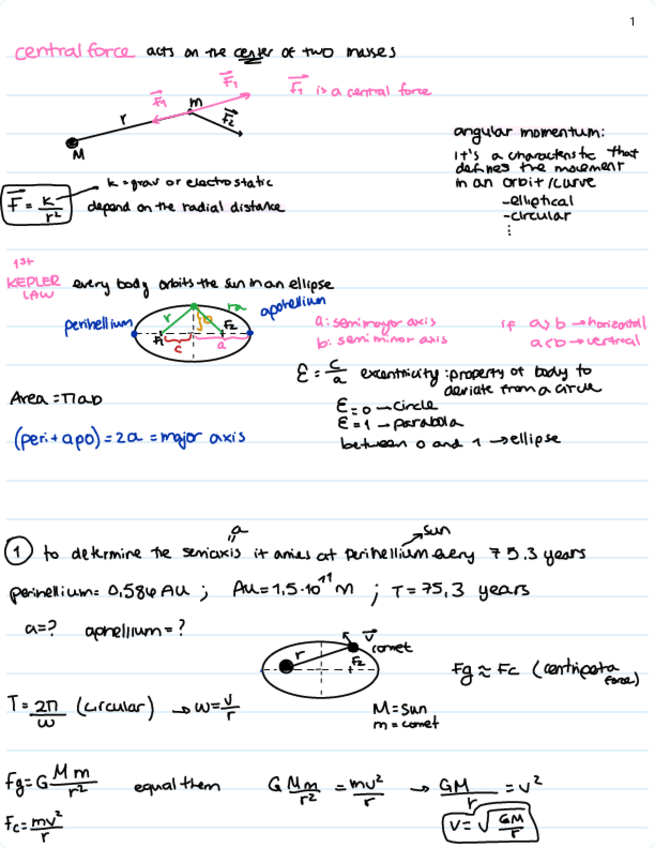 1
central force acts on the center of two masses
F₁
F₁ m F₁ is a central force
r F₂
M
angular momentum:
it's a characteristic that
defines the movement
in an orbit/curve
-elliptical
-circular
⋮
F = k/r² k = grav or electrostatic
depend on the radial distance
1st
KEPLER LAW every body orbits the sun in an ellipse
perihellium r F₁ F₂ c a aphellium
a: semimayor axis if a > b → horizontal
b: semiminor axis a < b → vertical
ε = c/a excentricity: property of body to
deviate from a circle
Area = πab
ε = 0 → circle
ε = 1 → parabola
(peri + apo) = 2a = major axis
between 0 and 1 → ellipse
a → sun
① to determine the semiaxis it arrives at perihellium every 75.3 years
perihellium = 0,586 AU ; AU = 1,5·10¹¹ m ; T = 75,3 years
a = ? aphellium = ?
r F₂ v comet
Fg ≈ Fc (centripeta force)
T = 2π/ω (circular) → ω = v/r
M = sun
m = comet
Fg = G Mm/r² equal them G Mm/r² = mv²/r → GM/r = v²
Fc = mv²/r v = √(GM/r)